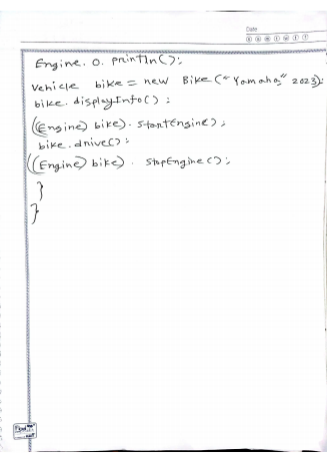 Date
Engine. O. println();
Vehicle bike = new Bike ("Yamaha," 2023);
bike. displayInfo();
((Engine) bike). startEngine();
bike. drive();
((Engine) bike). stopEngine();
}
}